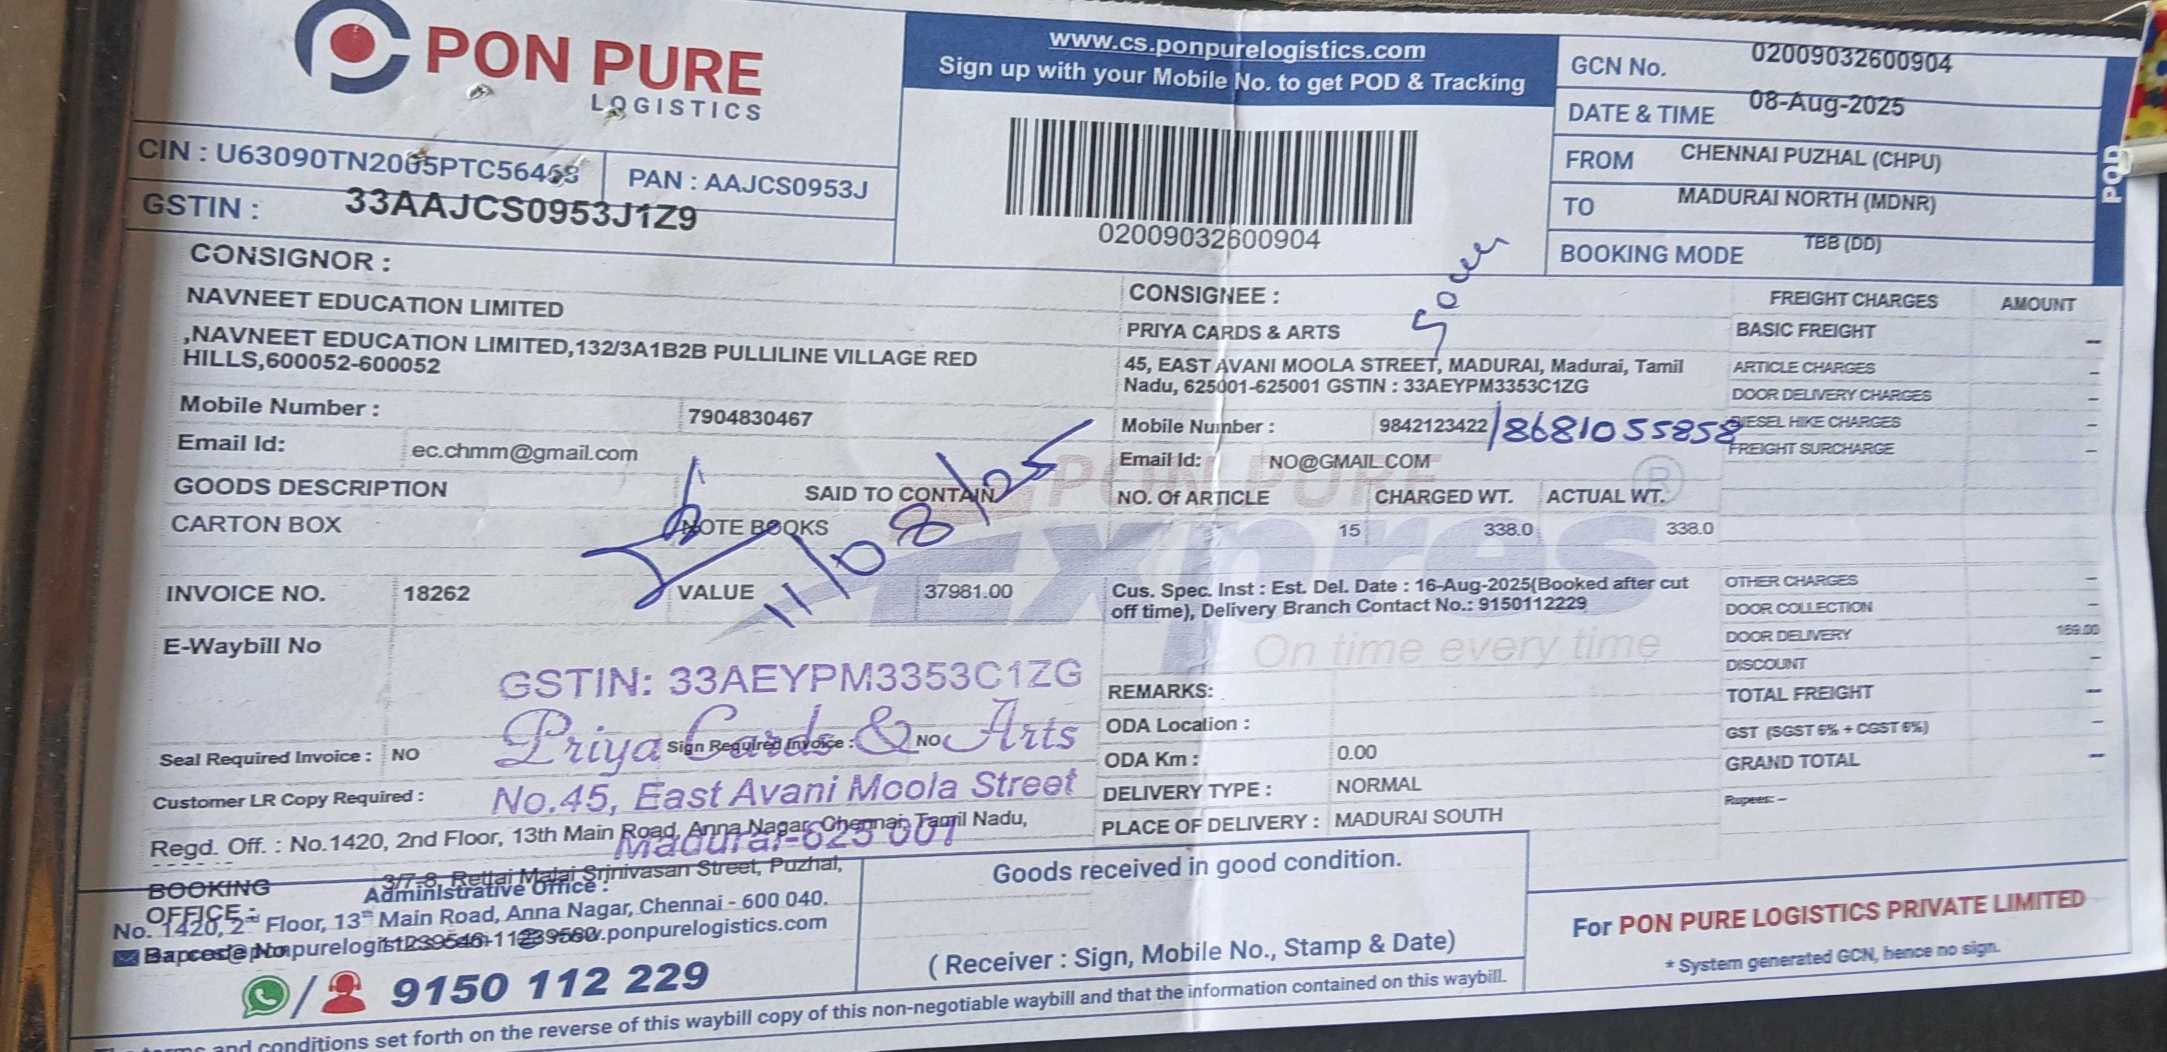 PON PURE
LOGISTICS
www.cs.ponpurelogistics.com
Sign up with your Mobile No. to get POD & Tracking
02009032600904
GCN No. 02009032600904
DATE & TIME 08-Aug-2025
FROM CHENNAI PUZHAL (CHPU)
TO MADURAI NORTH (MDNR)
BOOKING MODE TBB (DD)
POD
CIN : U63090TN2005PTC56468 PAN : AAJCS0953J
GSTIN : 33AAJCS0953J1Z9
CONSIGNOR :
NAVNEET EDUCATION LIMITED
,NAVNEET EDUCATION LIMITED,132/3A1B2B PULLILINE VILLAGE RED
HILLS,600052-600052
Mobile Number : 7904830467
Email Id: ec.chmm@gmail.com
GOODS DESCRIPTION SAID TO CONTAIN
CARTON BOX NOTE BOOKS
11/08/25
INVOICE NO. 18262 VALUE 37981.00
E-Waybill No
GSTIN: 33AEYPM3353C1ZG
Priya Cards & Arts
No.45, East Avani Moola Street
Madurai-625 001
Seal Required Invoice : NO Sign Required Invoice : NO
Customer LR Copy Required :
Regd. Off. : No.1420, 2nd Floor, 13th Main Road, Anna Nagar, Chennai, Tamil Nadu,
CONSIGNEE :
PRIYA CARDS & ARTS
45, EAST AVANI MOOLA STREET, MADURAI, Madurai, Tamil
Nadu, 625001-625001 GSTIN : 33AEYPM3353C1ZG
Mobile Number : 9842123422 /8681055858
Email Id: NO@GMAIL.COM
PON PURE
Expres
On time every time
NO. Of ARTICLE CHARGED WT. ACTUAL WT.
15 338.0 338.0
Cus. Spec. Inst : Est. Del. Date : 16-Aug-2025(Booked after cut
off time), Delivery Branch Contact No.: 9150112229
REMARKS:
ODA Location :
ODA Km : 0.00
DELIVERY TYPE : NORMAL
PLACE OF DELIVERY : MADURAI SOUTH
FREIGHT CHARGES AMOUNT
BASIC FREIGHT –
ARTICLE CHARGES –
DOOR DELIVERY CHARGES –
DIESEL HIKE CHARGES –
FREIGHT SURCHARGE –
OTHER CHARGES –
DOOR COLLECTION –
DOOR DELIVERY 169.00
DISCOUNT –
TOTAL FREIGHT –
GST (SGST 6% + CGST 6%) –
GRAND TOTAL –
Rupees: –
BOOKING OFFICE : 3/7-8, Rettai Malai Srinivasan Street, Puzhal,
Administrative Office :
No. 1420, 2nd Floor, 13th Main Road, Anna Nagar, Chennai - 600 040.
Barcode No
9150 112 229
Goods received in good condition.
( Receiver : Sign, Mobile No., Stamp & Date)
For PON PURE LOGISTICS PRIVATE LIMITED
* System generated GCN, hence no sign.
and conditions set forth on the reverse of this waybill copy of this non-negotiable waybill and that the information contained on this waybill.